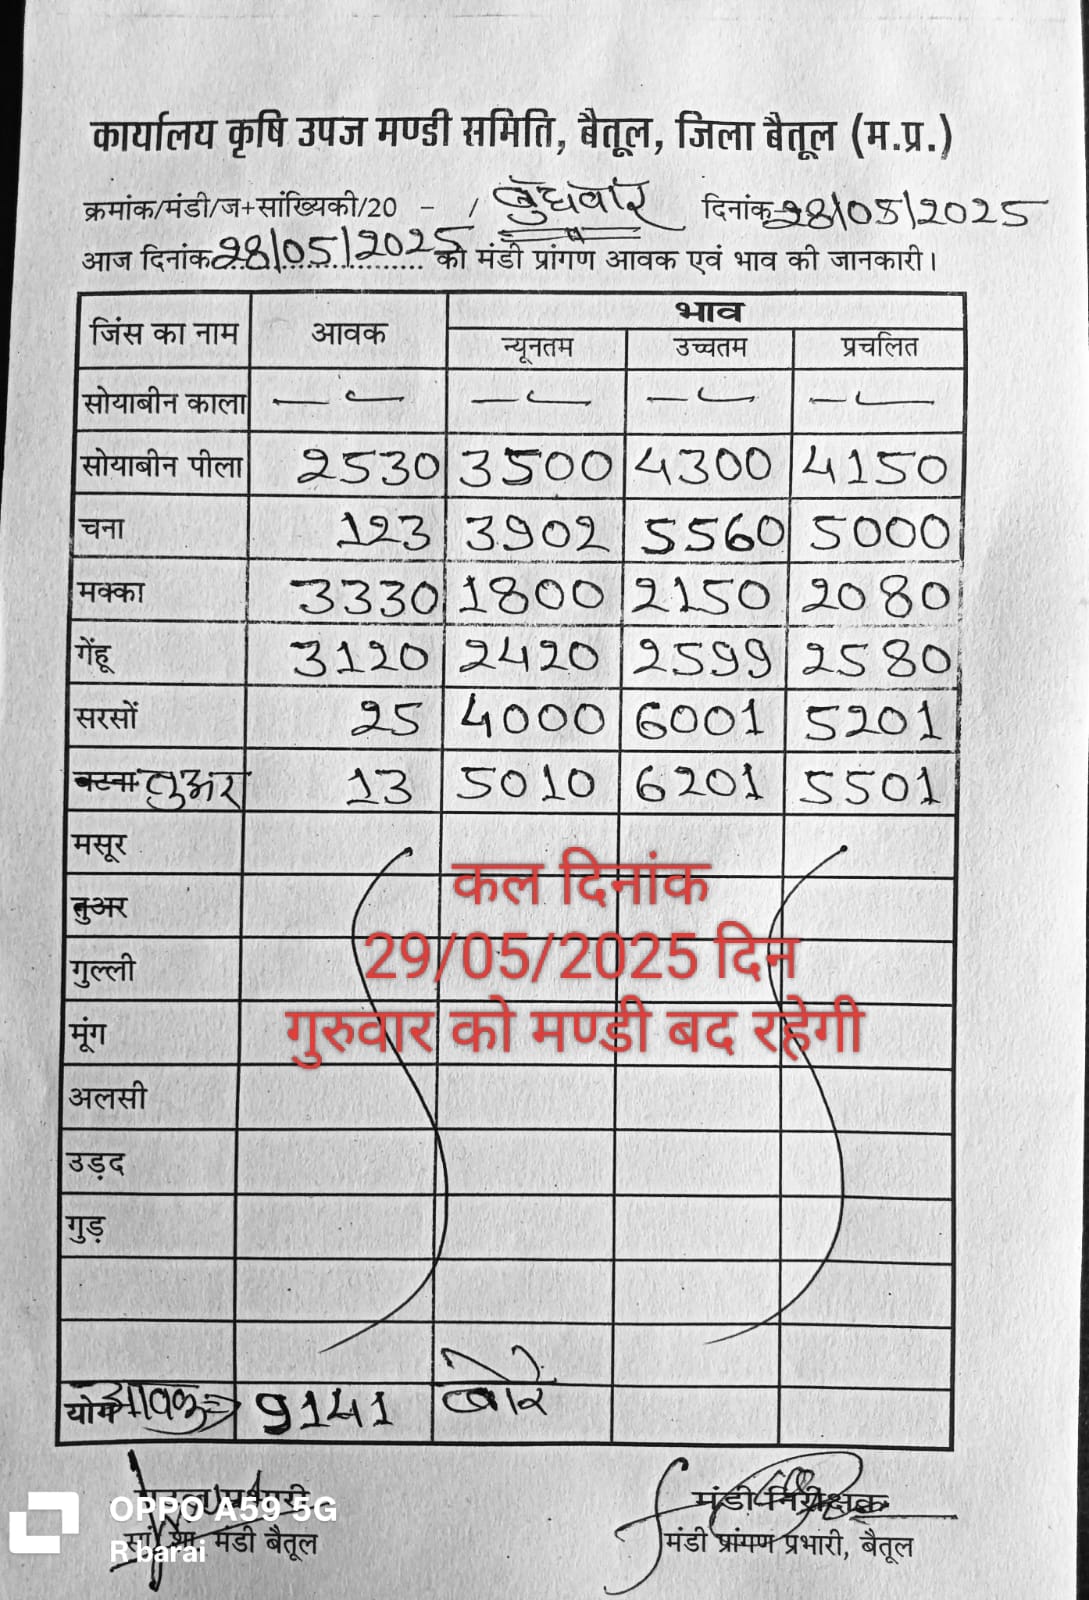 कार्यालय कृषि उपज मण्डी समिति, बैतूल, जिला बैतूल (म.प्र.)
क्रमांक/मंडी/ज+सांख्यिकी/20 - / बुधवार दिनांक 28/05/2025
आज दिनांक 28/05/2025 को मंडी प्रांगण आवक एवं भाव की जानकारी।
जिंस का नाम आवक भाव
न्यूनतम उच्चतम प्रचलित
सोयाबीन काला — — — — — — — —
सोयाबीन पीला 2530 3500 4300 4150
चना 123 3902 5560 5000
मक्का 3330 1800 2150 2080
गेंहू 3120 2420 2599 2580
सरसों 25 4000 6001 5201
तुअर 13 5010 6201 5501
मसूर
तुअर
गुल्ली
मूंग
अलसी
उड़द
गुड़
कल दिनांक
29/05/2025 दिन
गुरुवार को मण्डी बद रहेगी
योग आवक => 9141 बोरे
मंडी निरीक्षक
मंडी बैतूल
मंडी प्रांगण प्रभारी, बैतूल
OPPO A59 5G
R barai